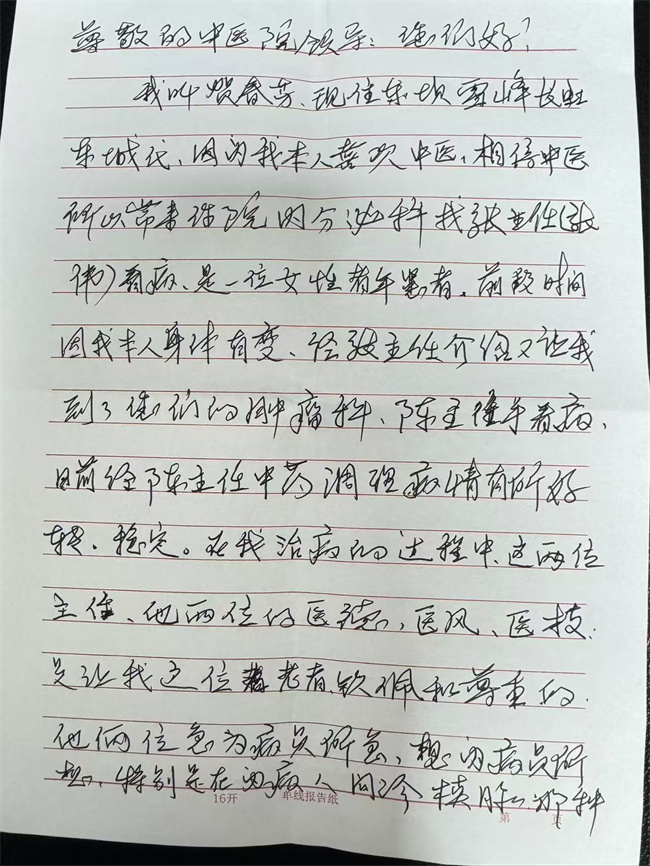 尊敬的中医院领导：您们好！
我叫贺春芳、现住东坝雪峰长虹
东城代、因为我本人喜欢中医、相信中医
所以常来该院内分泌科找张主任（张
伟）看病、是一位女性老年患者、前段时间
因我本人身体有变、经张主任介绍又让我
到了您们的肿瘤科、陈主任手看病、
目前经陈主任中药调理病情有所好
转、稳定。在我治病的过程中、这两位
主任、他两位的医德、医风、医技、
是让我这位老者、钦佩和尊重的、
他俩位急为病员所急、想为病员所
想、特别是在为病人问诊 摸脉、那种
16开 单线报告纸 第 页